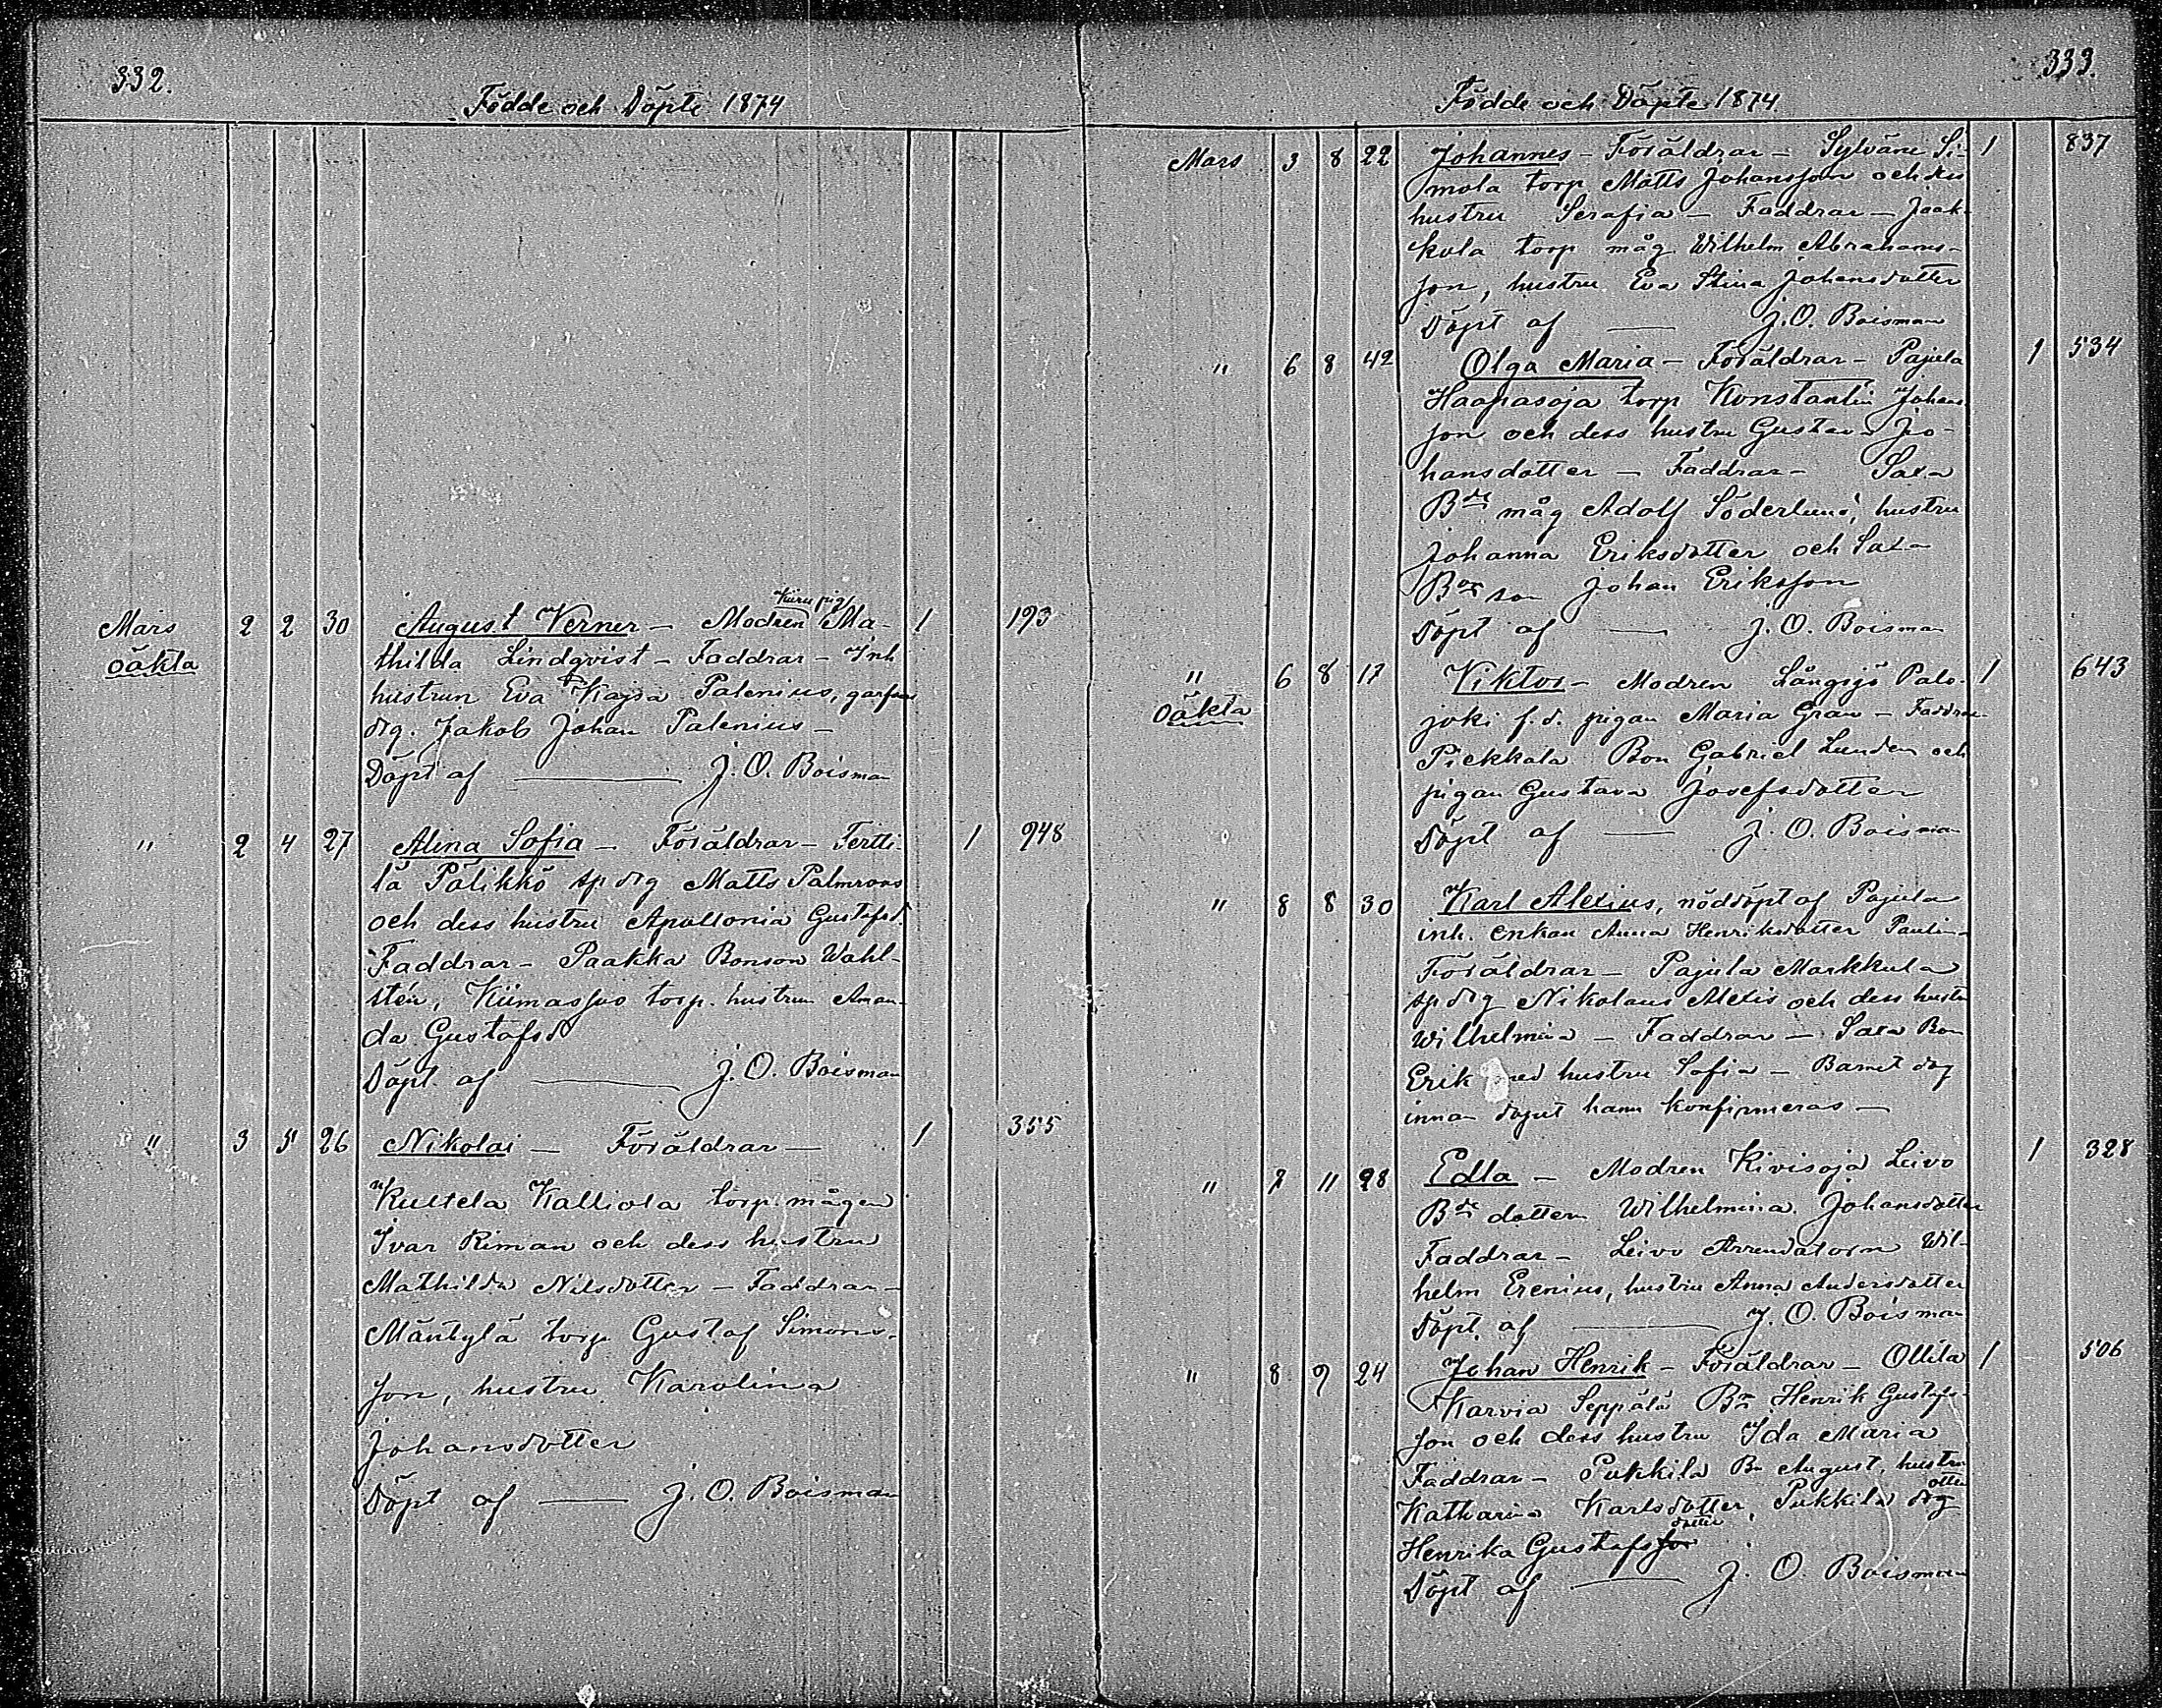 332.
Födde och Döpte 1874
Mars 2 2 30 August Verner – Modren Kiiru pig. Ma- 1 193
oäkta thilda Lindqvist – Faddrar – Inh
hustrun Eva Kajsa Palenius,
drg. Jakob Johan Palenius –
Döpt af — J. O. Boisman
" 2 4 27 Alina Sofia – Föräldrar – Tertti- 1 948
lä Pälikkö sp drg Matts Palmroos
och dess hustru Apollonia Gustafsd.
Faddrar – Paakka Bonson Wahl-
stén, Kiimassuo torp. hustrun Aman-
da Gustafsd
Döpt af — J. O. Boisman
" 3 5 26 Nikolai – Föräldrar – 1 355
Kultela Kalliola torp. mågen
Ivar Riman och dess hustru
Mathilda Nilsdotter – Faddrar –
Mäntylä torp Gustaf Simons-
son, hustru Karolina
Johansdotter
Döpt af — J. O. Boisman
333.
Födde och Döpte 1874
Mars 3 8 22 Johannes – Föräldrar – Sylväne Si- 1 837
mola torp Matts Johansson och dess
hustru Serafia – Faddrar – Jaak-
kola torp måg Wilhelm Abrahams-
son, hustru Eva Stina Johansdotter
Döpt af — J. O. Boisman
" 6 8 42 Olga Maria – Föräldrar – Pajula 1 534
Haapasoja torp Konstantin Johans-
son och dess hustru Gustava Jo-
hansdotter – Faddrar – Saxa
Bde måg Adolf Söderlund, hustru
Johanna Eriksdotter och Saxa
Bde son Johan Eriksson
Döpt af — J. O. Boisman
" 6 8 17 Viktor – Modren Långsjö Palo- 1 643
oäkta joki f. d. pigan Maria Gran – Faddrar
Piekkala Bon Gabriel Lunden och
pigan Gustava Josefsdotter
Döpt af — J. O. Boisman
" 8 8 30 Karl Alexius, nöddöpt af Pajula
inh. enkan Anna Henriksdotter Paulin –
Föräldrar – Pajula Markkula
sp drg Nikolaus Alexis och dess hustru
Wilhelmina – Faddrar – Saxa Bon
Erik med hustru Sofia – Barnet dog
innan dopet hann konfirmeras –
" 7 11 28 Edla – Modren Kivisoja Leivo 1 328
Bde dottern Wilhelmina Johansdotter
Faddrar – Leivo Arrendatorn Wil-
helm Erenius, hustru Anna Andersdotter
Döpt af — J. O. Boisman
" 8 9 24 Johan Henrik – Föräldrar – Ollila 1 506
Karvia Seppälä Bn Henrik Gustafs-
son och dess hustru Ida Maria
Faddrar – Pukkila Bn August, hustru
Katharina Karlsdotter, Pukkila drg dotter
Henrika Gustafsson dotter
Döpt af — J. O. Boisman